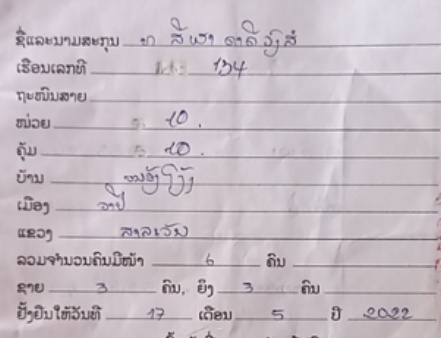 ຊື່ແລະນາມສະກຸນ ທ ສີເຫຼາ
ເຮືອນເລກທີ 134
ຖະໜົນສາຍ
ໜ່ວຍ 10 .
ຄຸ້ມ 10 .
ບ້ານ
ເມືອງ ວາປີ
ແຂວງ ສາລະວັນ
ລວມຈຳນວນຄົນມີໜ້າ 6 ຄົນ
ຊາຍ 3 ຄົນ, ຍິງ 3 ຄົນ
ຢັ້ງຢືນໃຫ້ວັນທີ 17 ເດືອນ 5 ປີ 2022